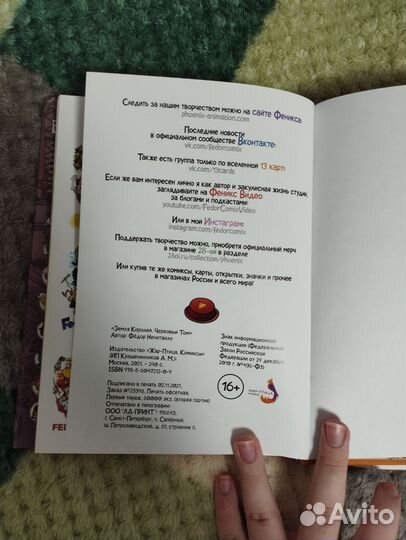 Следить за нашим творчеством можно на сайте Феникса:
phoenix-animation.com
Последние новости
в официальном сообществе Вконтакте:
vk.com/fedorcomix
Также есть группа только по вселенной 13 карт:
vk.com/13cards
Если же вам интересен лично я как автор и закулисная жизнь студии,
заглядывайте на Феникс Видео
за блогами и подкастами:
youtube.com/FedorComixVideo
Или в мой Инстаграм:
instagram.com/fedorcomix
Поддержать творчество можно, приобретя официальный мерч
в магазине 28-ой в разделе
28oi.ru/collection/phoenix
Или купив те же комиксы, карты, открытки, значки и прочее
в магазинах России и всего мира!
«Земля Королей. Червовый Том»
Автор: Фёдор Нечитайло
Издательство «Жар-Птица. Комиксы»
(ИП Крашенинников А. М.)
Москва, 2021. – 240 с.
Знак информационной
продукции (Федеральный
Закон Российской
Федерации от 29 декабря
2010 г. №436-ФЗ)
16+
Подписано в печать 02.11.2021.
Печать офсетная.
Первый тираж,
(вторая партия)
Отпечатано в типографии:
ООО "ЛД-ПРИНТ",
г. Санкт-Петербург, п. Сапёрный,
ш. Петрозаводское, д. 61, строение 6.
FE
Avito